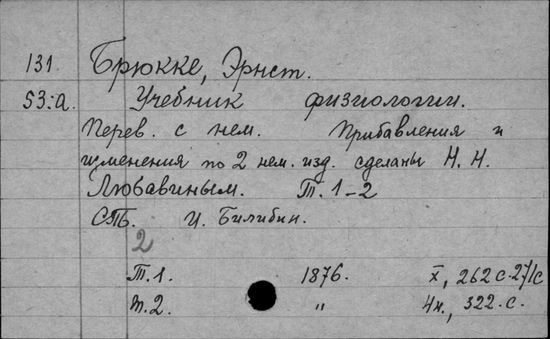 131. Брюкке, Эрнст.
53:а. Учебник физиологии.
Перев. с нем. Прибавления и
изменения по 2 нем. изд. сделаны Н. Н.
Любавиным. Т. 1-2
СПБ. И. Билибин.
2
Т.1. 1876. X, 262 с. 271с
Т.2. " 4н., 322. с.